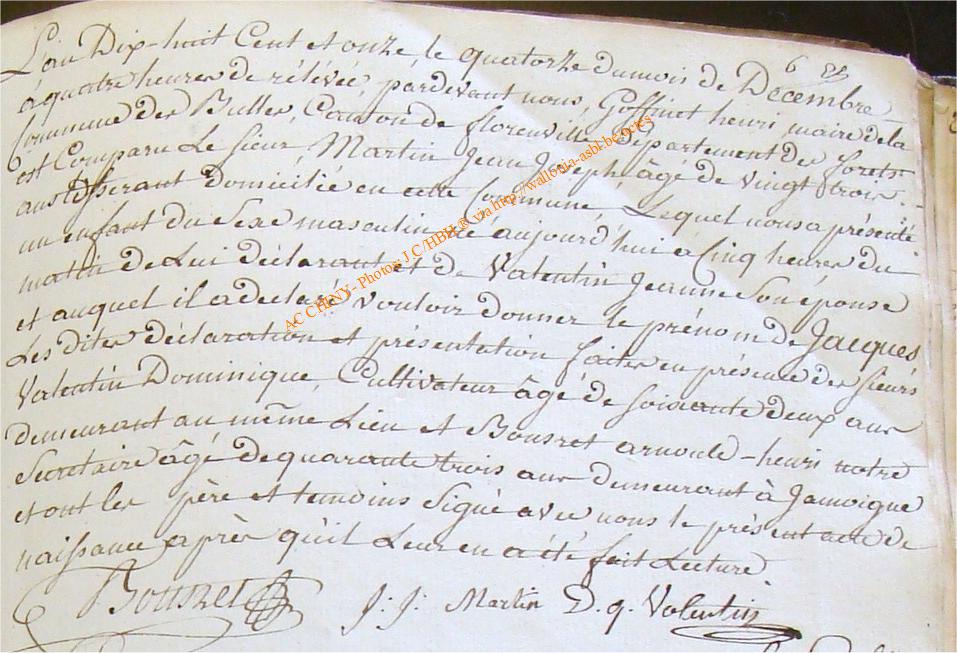 L'an Dix-huit Cent et onze, le quatorze du mois de Décembre
à quatre heures de rélévée, pardevant nous, Goffinet henri, maire de la
Commune des Bulles, Canton de florenville Département des forets
est Comparu Le Sieur, Martin Jean Joseph âgé de vingt trois
ans domicilié en cette Commune, Lequel nous a présenté
un enfant du Sexe masculin né aujourd'hui à Cinq heures du
matin de Lui déclarant et de Valentin Jeanne Son épouse
et auquel il a déclaré vouloir donner le prénom de Jacques
Les dites déclaration et présentation faites en présence des Sieurs
Valentin Dominique, Cultivateur âgé de soixante deux ans
demeurant au même Lieu et Bousret arnould-henri notre
Secretaire âgé de quarante trois ans demeurant à Jamoigne
et ont les père et temoins Signé avec nous le présent acte de
naissance après qu'il Leur en a été fait Lecture.
Bousret J: J: Martin D. q. Valentin
AC CHINY - Photos: J C/HBH ® via http://wallonia-asbl-be/actes